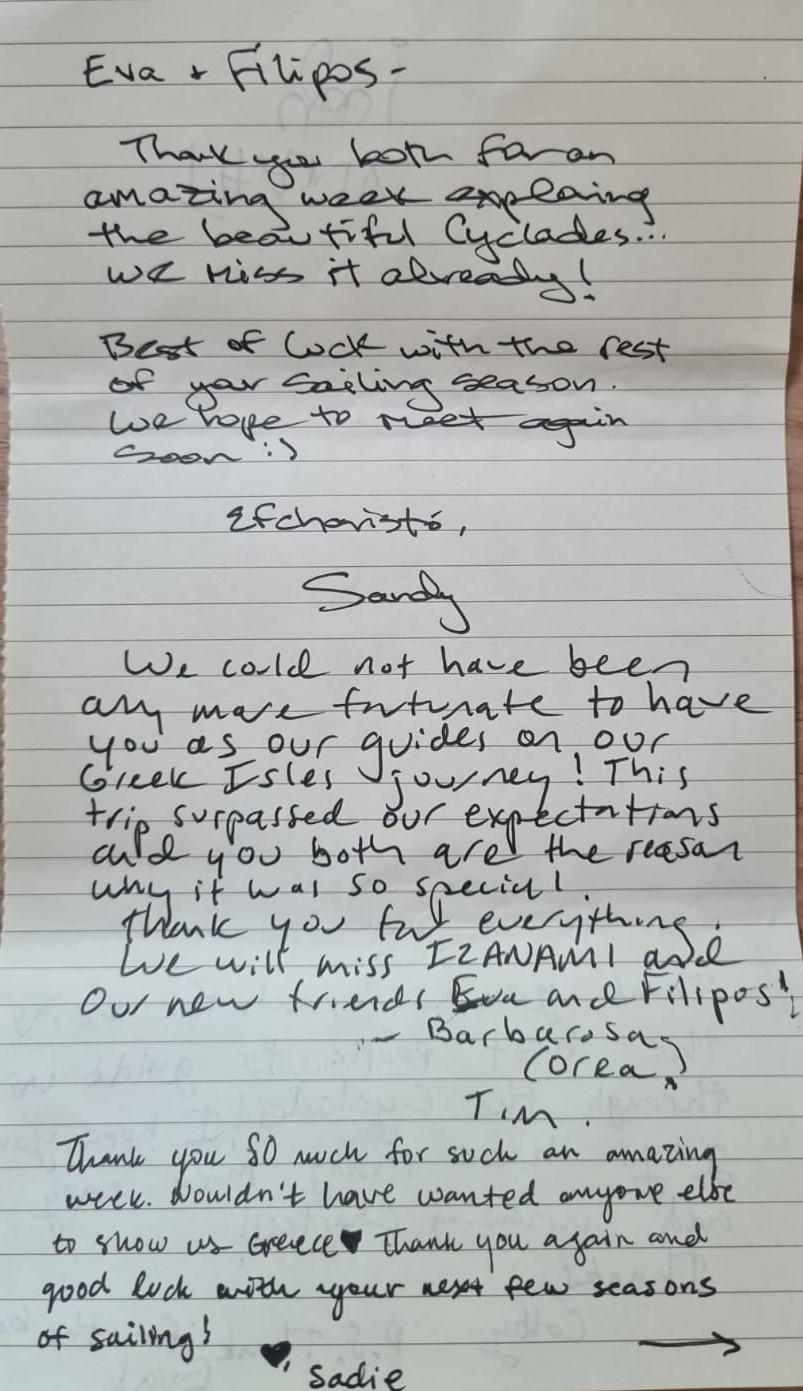 Eva + Filipos -
Thank you both for an
amazing week exploring
the beautiful Cyclades...
we miss it already!
Best of luck with the rest
of your sailing season.
We hope to meet again
soon :)
Efcharistó,
Sandy
We could not have been
any more fortunate to have
you as our guides on our
Greek Isles journey! This
trip surpassed our expectations
and you both are the reason
why it was so special!
Thank you for everything.
We will miss IZANAMI and
Our new friends Eva and Filipos!
- Barbarosa
(Orea)
Tim.
Thank you SO much for such an amazing
week. Wouldn't have wanted anyone else
to show us Greece♥ Thank you again and
good luck with your next few seasons
of sailing!
♥, Sadie →